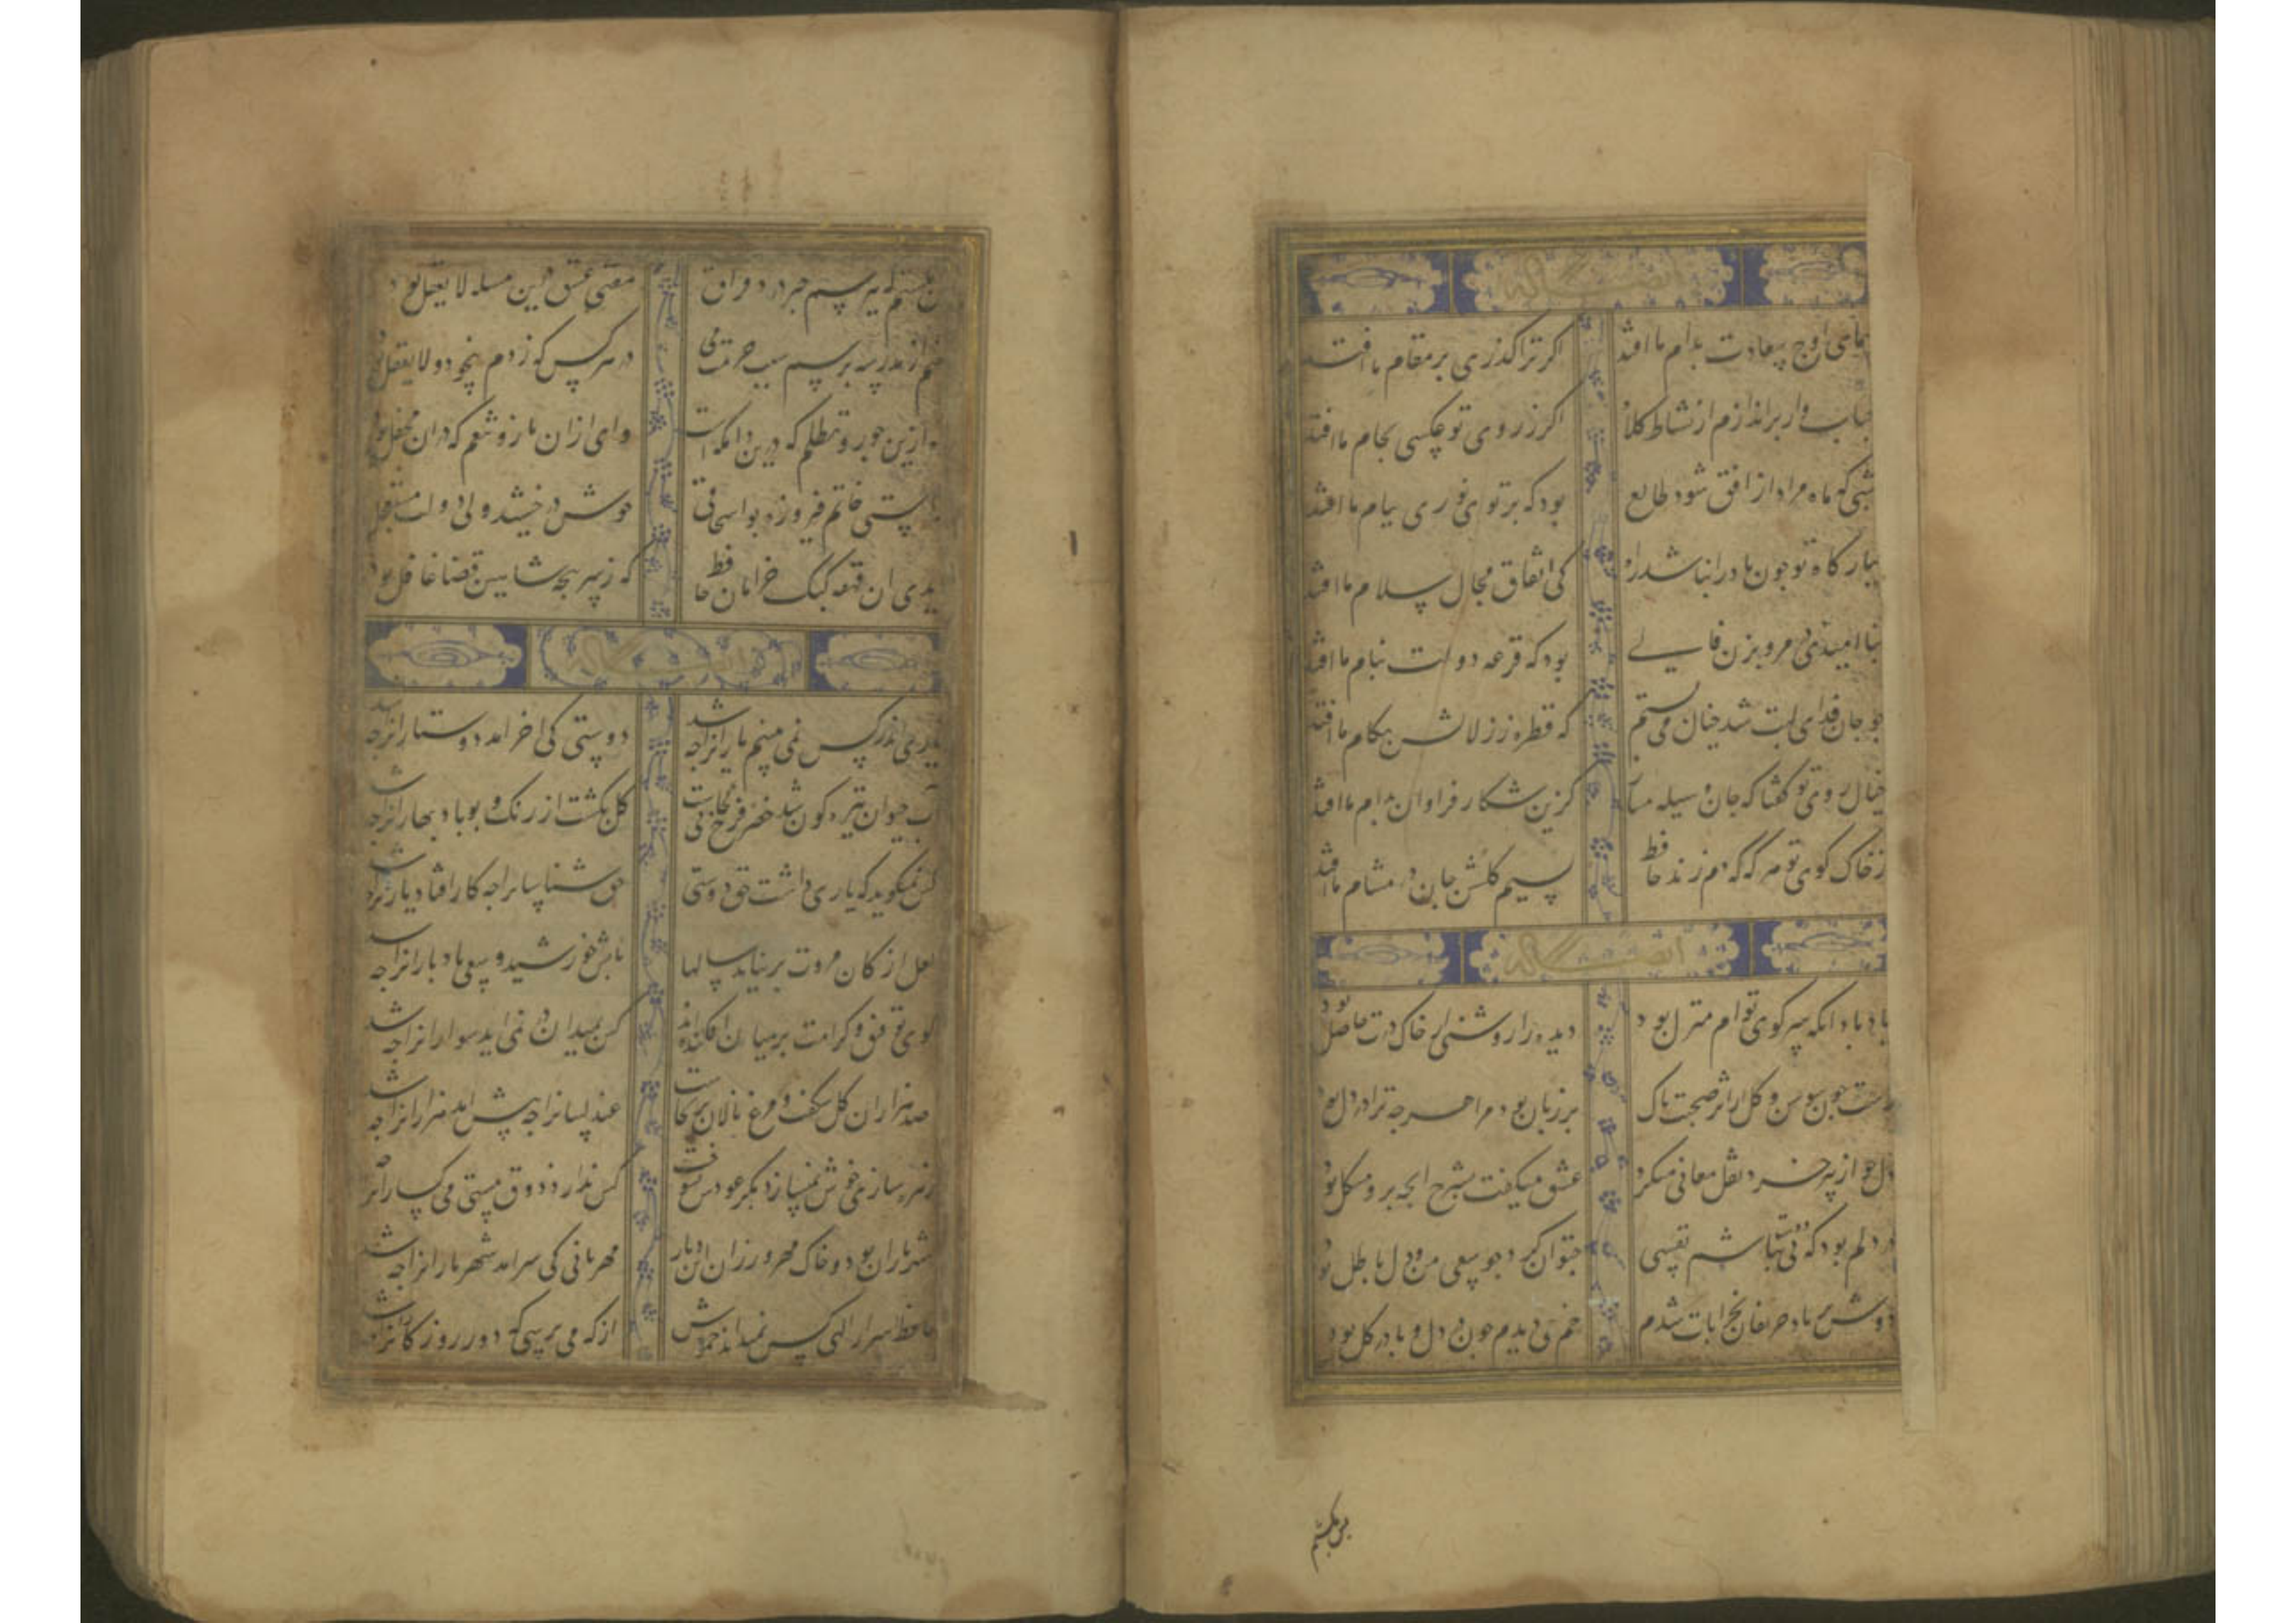 ایضا له
همای اوج سعادت بدام ما افتد اکر ترا کذری بر مقام ما افتد
حباب وار براندازم از نشاط کلاه اکر ز روی تو عکسی بجام ما افتد
شبی که ماه مراد از افق شود طالع بود که پرتو نوری ببام ما افتد
ببارکاه تو چون باد را نباشد راه کی اتفاق مجال سلام ما افتد
بنا امیدی ازین در مرو بزن فالی بود که قرعه دولت بنام ما افتد
چو جان فدای لبت شد خیال می بستم که قطره ز زلالش بکام ما افتد
خیال روی تو کفتا که جان وسیله مساز کزین شکار فراوان بدام ما افتد
ز خاک کوی تو هر که که دم زند حافظ نسیم کلشن جان در مشام ما افتد
ایضا له
یاد باد انکه سر کوی توام منزل بود دیده را روشنی از خاک درت حاصل بود
راست چون سوسن و کل از اثر صحبت پاک بر زبان بود مرا هرچه ترا در دل بود
دل چو از پیر خرد نقل معانی میکرد عشق میکفت بشرح انچه برو مشکل بود
در دلم بود که بی دوست نباشم نفسی چتوان کرد چو سعی من و دل باطل بود
دوش بر یاد حریفان بخرابات شدم خم می دیدم خون در دل و پا در کل بود
بس بکشتم
بس بکشتم که بپرسم سبب درد فراق مفتی عشق درین مسله لا یعقل بود
وای ازان ناز و تنعم که دران محفل بود
راستی خاتم فیروزه بواسحاقی خوش درخشید ولی دولت مستعجل بود
دیدی ان قهقه کبک خرامان حافظ که ز سرپنجه شاهین قضا غافل بود
ایضا له
یاری اندر کس نمی بینم یارانرا چه شد دوستی کی اخر امد دوستدارانرا چه شد
آب حیوان تیره کون شد خضر فرخ پی کجاست کل بکشت از رنک و بو باد بهارانرا چه شد
کس نمیکوید که یاری داشت حق دوستی حق شناسانرا چه حال افتاد یارانرا چه شد
لعلی از کان مروت بر نیامد سالها تابش خورشید و سعی باد و بارانرا چه شد
کوی توفیق و کرامت در میان افکنده اند کس بمیدان در نمی اید سوارانرا چه شد
صد هزاران کل شکفت و مرغ نالان برنخاست عندلیبانرا چه پیش امد هزارانرا چه شد
زهره سازی خوش نمیسازد مکر عودش بسوخت کس ندارد ذوق مستی می کسارانرا چه شد
شهر یاران بود و خاک مهرورزان این دیار مهربانی کی سر امد شهریارانرا چه شد
حافظ اسرار الهی کس نمیداند خموش از که می پرسی که دور روزکارانرا چه شد